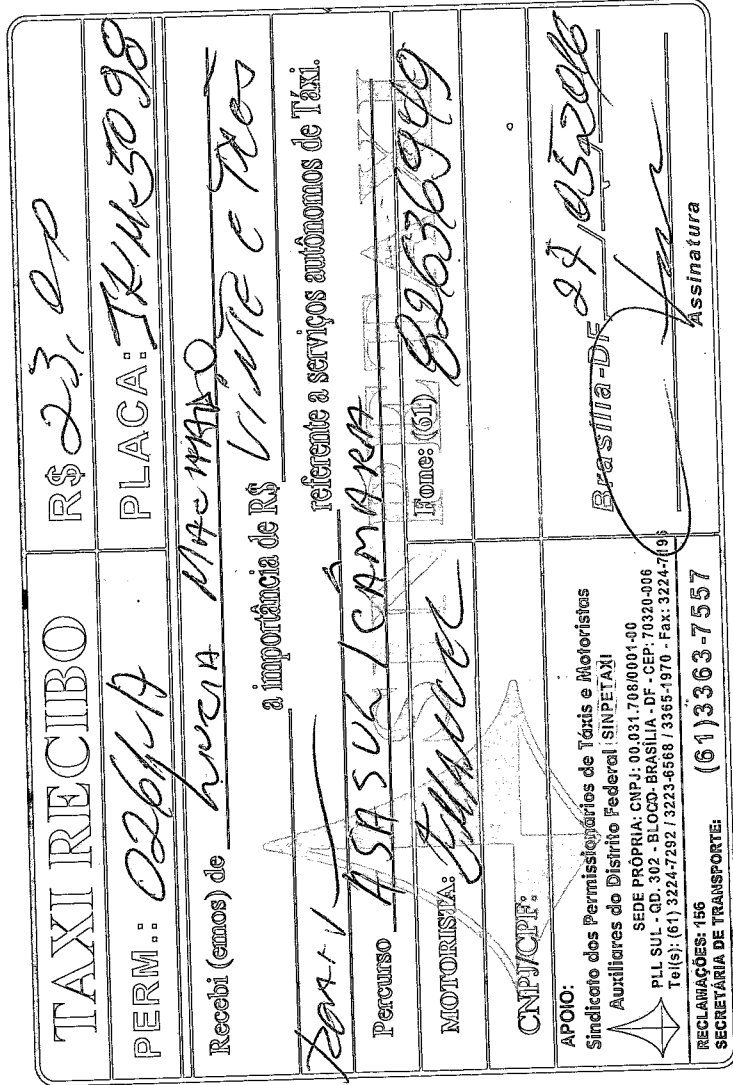 TAXI RECIBO
R$ 23,00
PERM.:
PLACA: JKM5098
Recebi (emos) de Lucia Machado
a importância de R$ VINTE E TRES
referente a serviços autônomos de Táxi.
Percurso ASA SUL / CÂMARA
SINPETAXI
MOTORISTA:
Fone: (61) 82636949
CNPJ/CPF:
Brasília-DF 27/05/2016
Assinatura
APOIO:
Sindicato dos Permissionários de Táxis e Motoristas
Auxiliares do Distrito Federal | SINPETAXI
SEDE PRÓPRIA: CNPJ: 00.031.708/0001-00
PLL SUL - QD. 302 - BLOCO- BRASÍLIA - DF - CEP: 70320-006
Tel(s): (61) 3224-7292 / 3223-6568 / 3365-1970 - Fax: 3224-7196
RECLAMAÇÕES: 156
SECRETÁRIA DE TRANSPORTE: (61)3363-7557